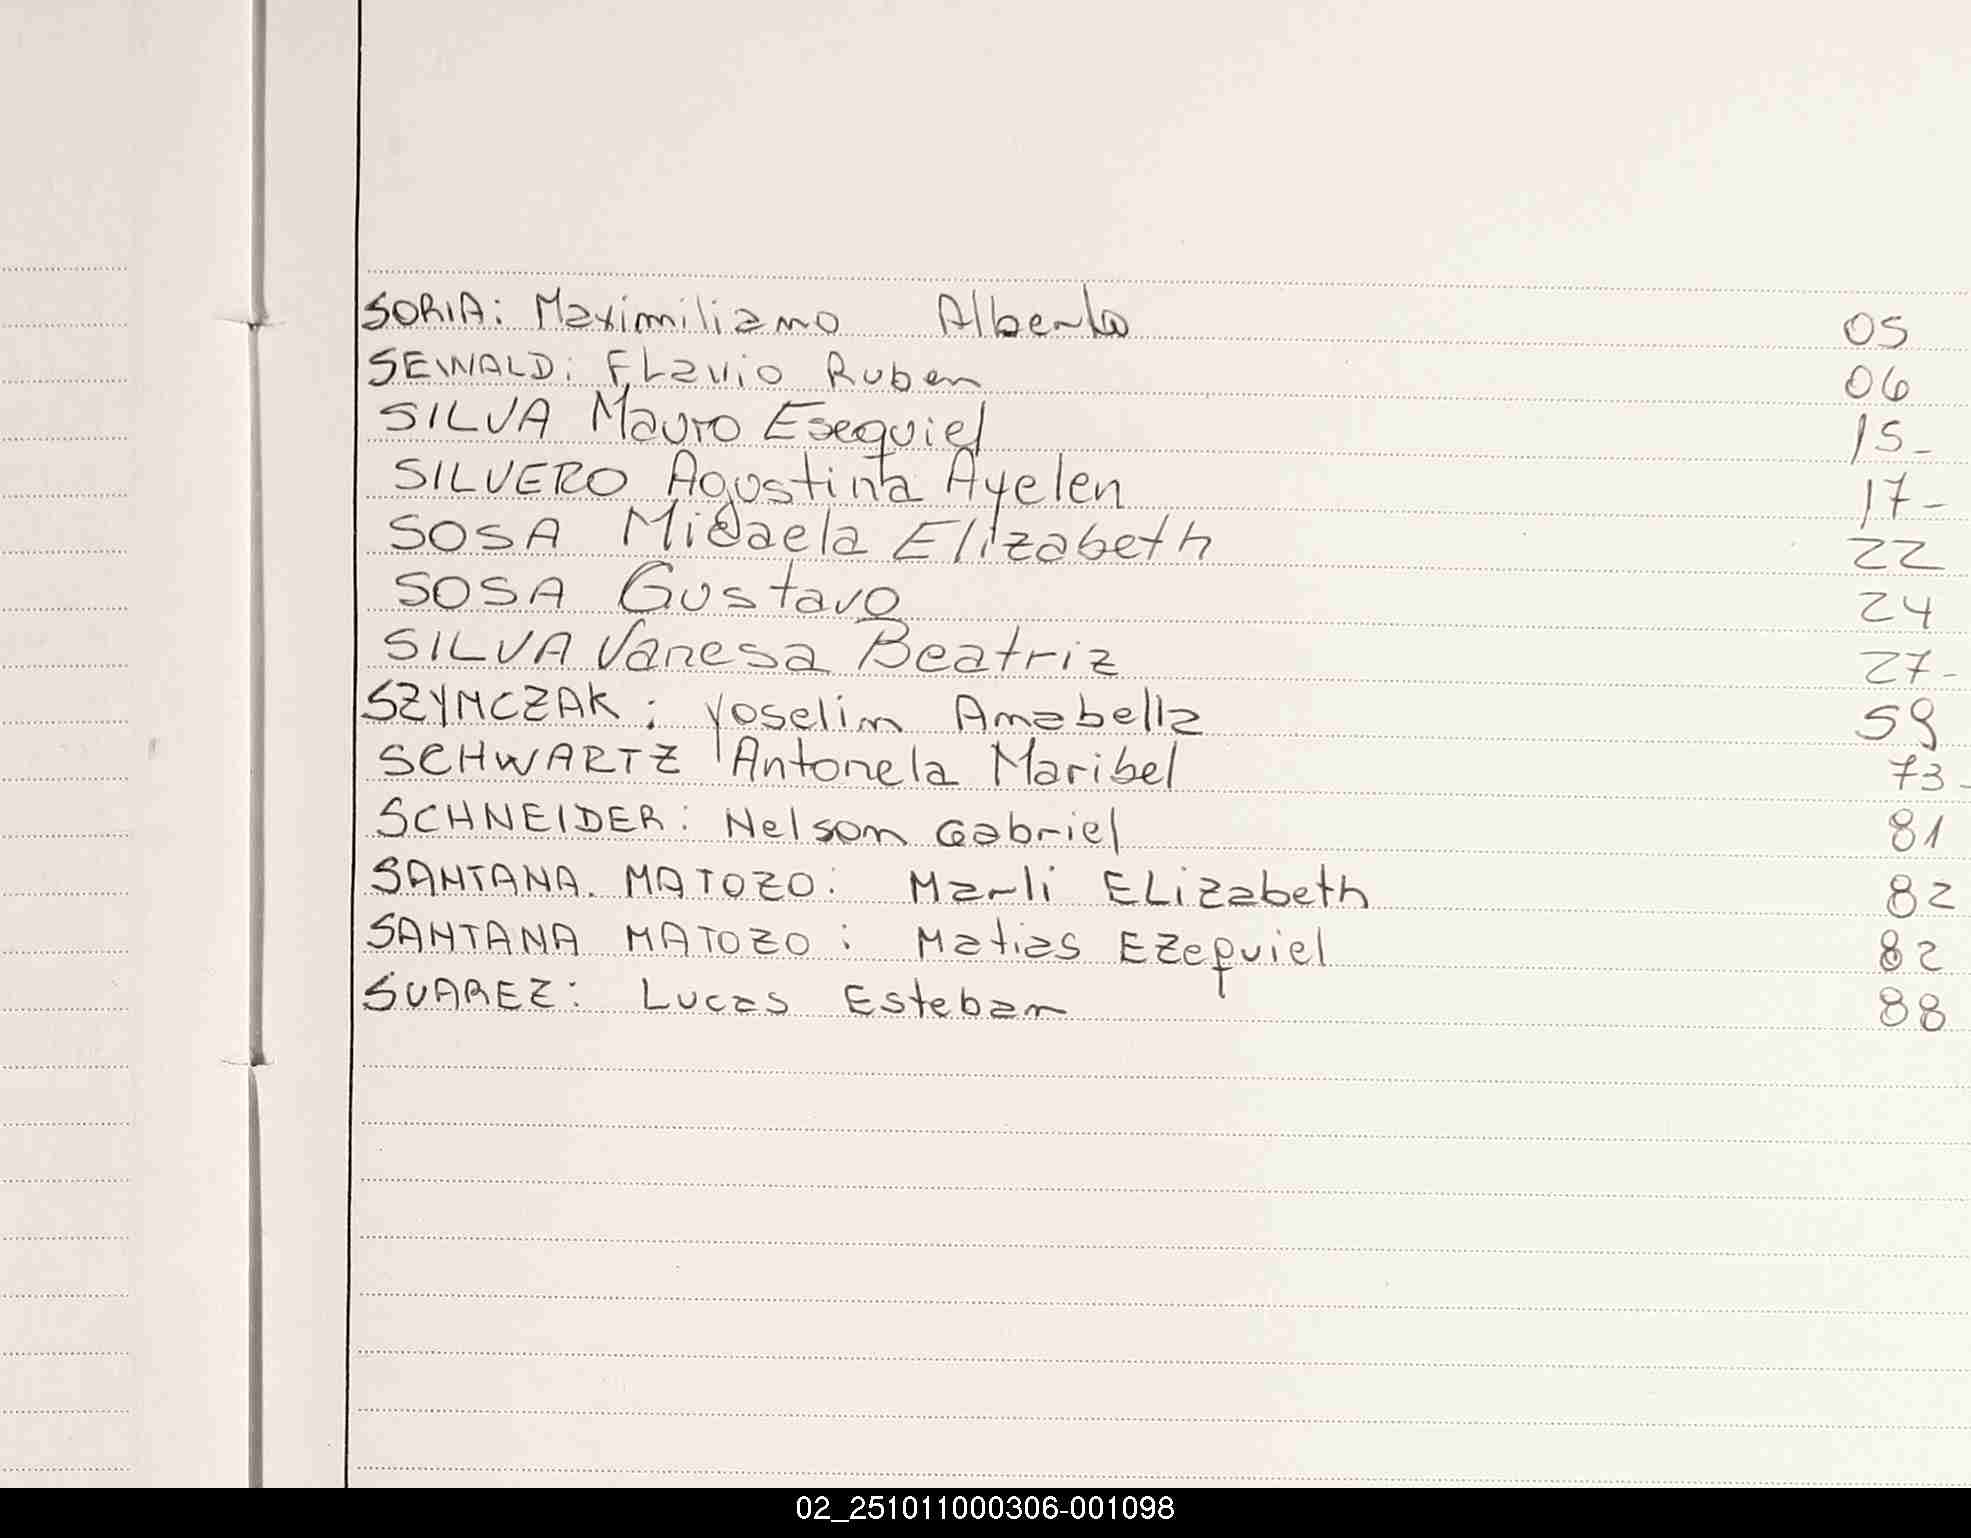 SORIA: Maximiliano Alberto 05
SEWALD: Flavio Ruben 06
SILVA Mauro Esequiel 15-
SILVERO Agustina Ayelen 17-
SOSA Micaela Elizabeth 22
SOSA Gustavo 24
SILVA Vanesa Beatriz 27-
SZYMCZAK: Yoselin Anabella 59
SCHWARTZ Antonela Maribel 73-
SCHNEIDER: Nelson Gabriel 81
SANTANA. MATOZO: Marli ELizabeth 82
SANTANA MATOZO: Matias EZequiel 82
SUAREZ: Lucas Esteban 88
02_251011000306-001098